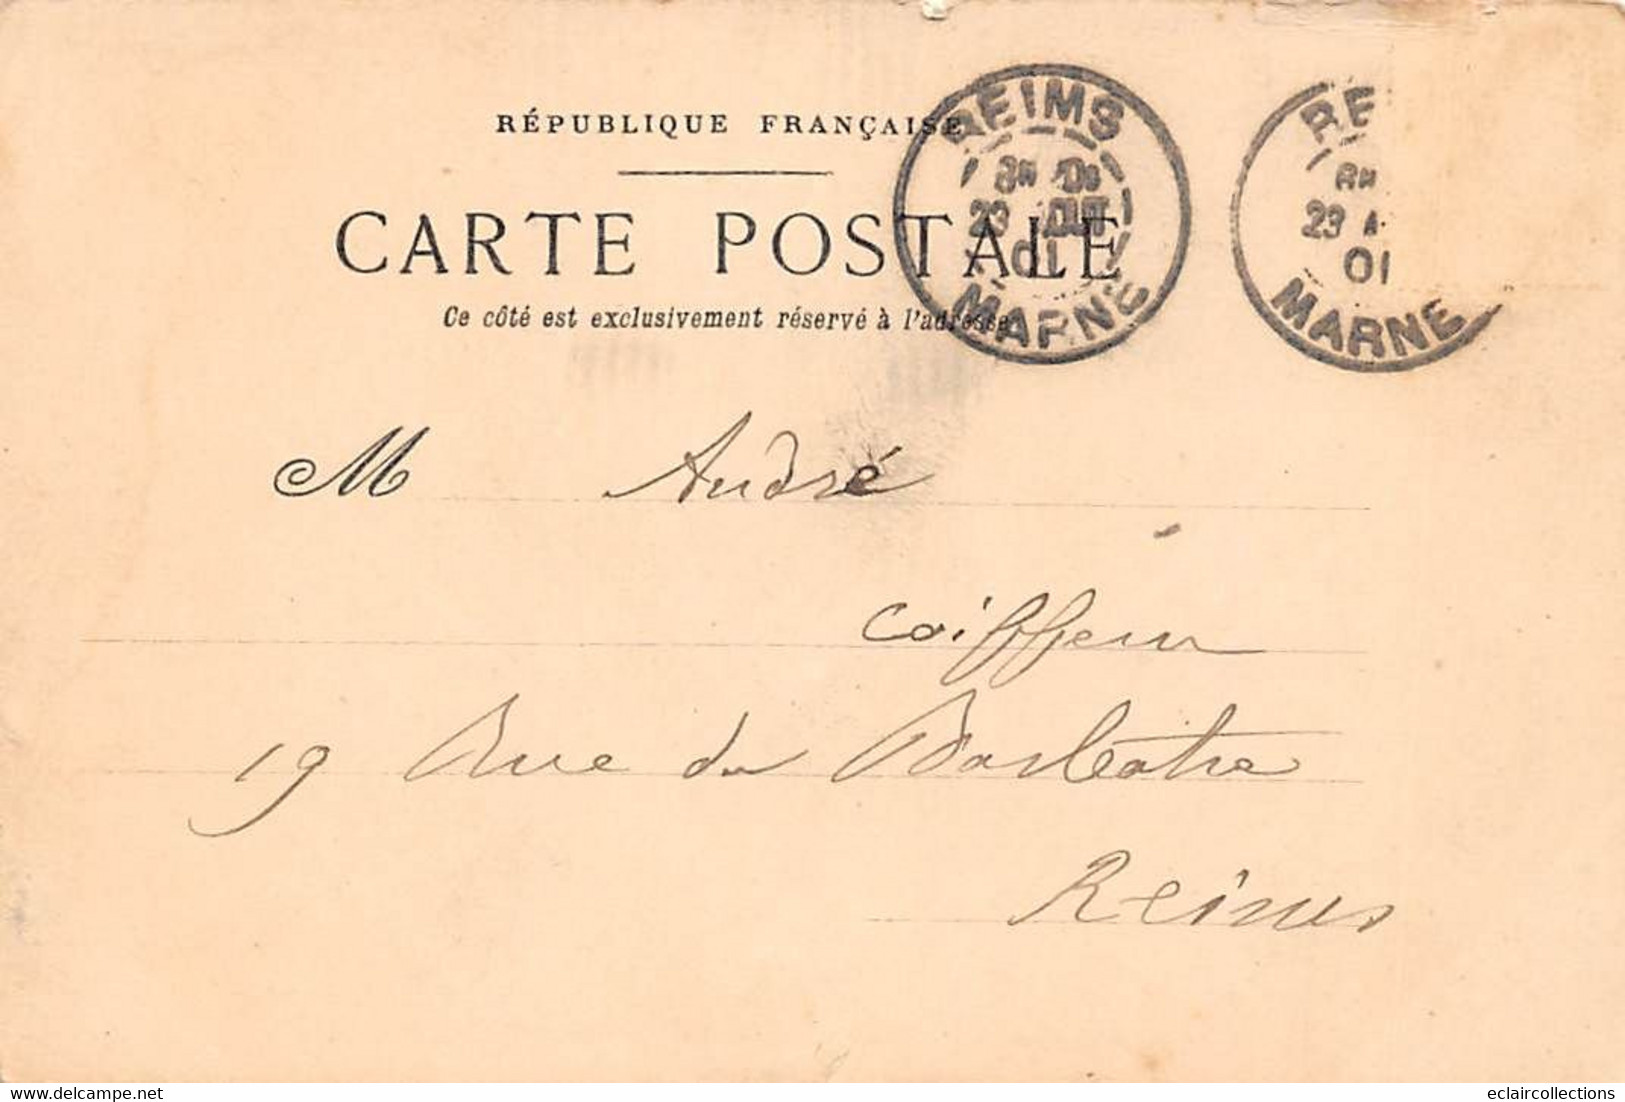 RÉPUBLIQUE FRANÇAISE
CARTE POSTALE
Ce côté est exclusivement réservé à l'adresse
REIMS
23 AOUT
01
MARNE
RE
23 A
01
MARNE
M André
Coiffeur
19 Rue du Barbatre
Reims
delcampe.net
eclaircollections